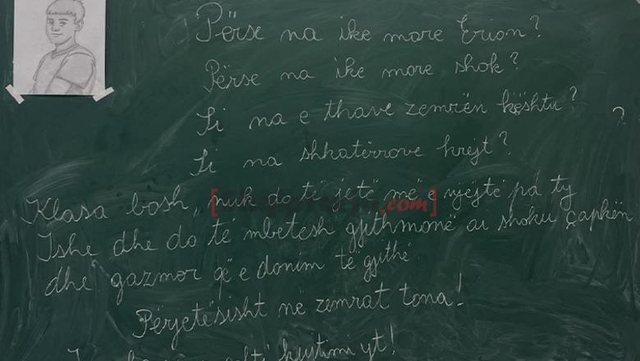 Përse na ike more Erion?
Përse na ike more shok?
Si na e thave zemrën kështu?
?
Si na shkatërrove krejt?
Klasa bosh, nuk do të jetë më e njejtë pa ty
Ishe dhe do të mbetesh gjithmonë ai shoku çapkën
dhe gazmor që e donim të gjithë
Përjetësisht në zemrat tona!
kujtimi yt!
.com]